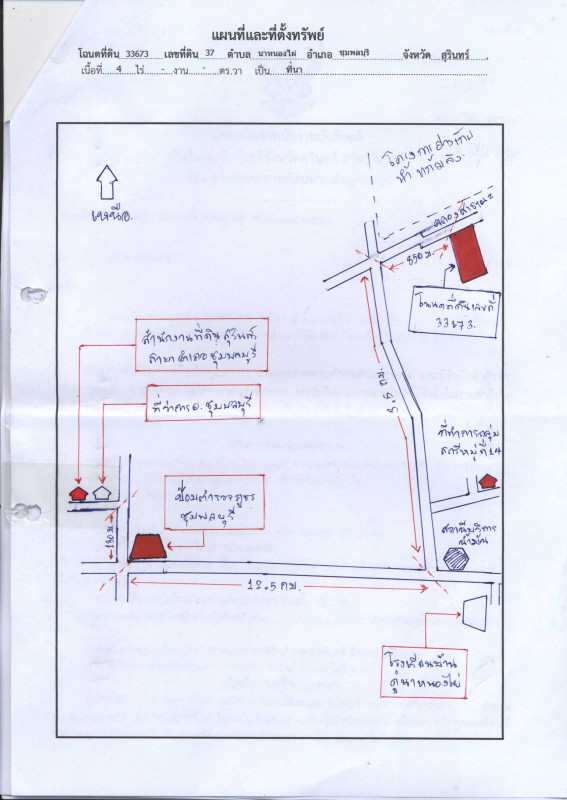 แผนที่และที่ตั้งทรัพย์
โฉนดที่ดิน 33673 เลขที่ดิน 37 ตำบล นาหนองไผ่ อำเภอ ชุมพลบุรี จังหวัด สุรินทร์ .
เนื้อที่ 4 ไร่ - งาน - ตร.วา เป็น ที่นา
เหนือ.
คลองสาธารณะ
850 ม.
โฉนดที่ดินเลขที่
33673.
สำนักงานที่ดิน สุรินทร์
สาขาอำเภอ ชุมพลบุรี
ที่ว่าการ อ. ชุมพลบุรี
ที่ทำการกลุ่ม
สตรีหมู่ที่ 14
ป้อมตำรวจภูธร
ชุมพลบุรี
130 ม.
สถานีบริการ
น้ำมัน
12.5 กม.
โรงเรียนบ้าน
ตู้นาหนองไผ่